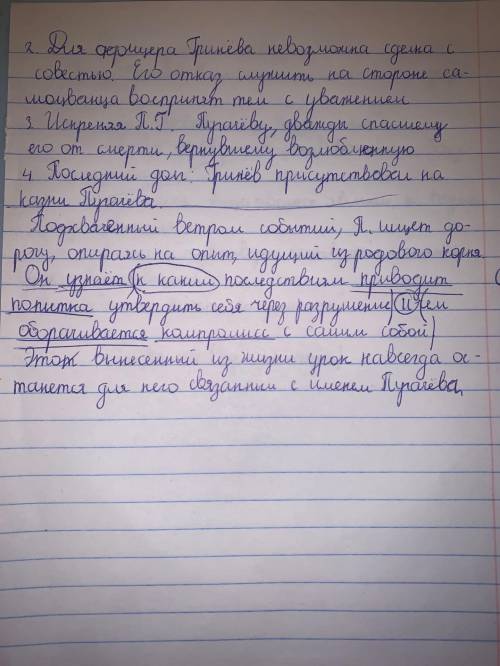 2. Для офицера Гринёва невозможна сделка с
совестью. Его отказ служить на стороне са-
мозванца воспринят тем с уважением
3. Искреняя П.Г. Пугачёву, дважды спасшему
его от смерти, вернувшему возлюбленную
4. Последний долг: Гринёв присутствовал на
казни Пугачёва.
Подхваченный ветром событий, П. ищет до-
рогу, опираясь на опыт, идущий из родового корня.
Он узнаёт к каким последствиям приводит
попытка утвердить себя через разрушение и чем
оборачивается компромисс с самим собой
Этот вынесенный из жизни урок навсегда ос-
танется для него связанным с именем Пугачёва.